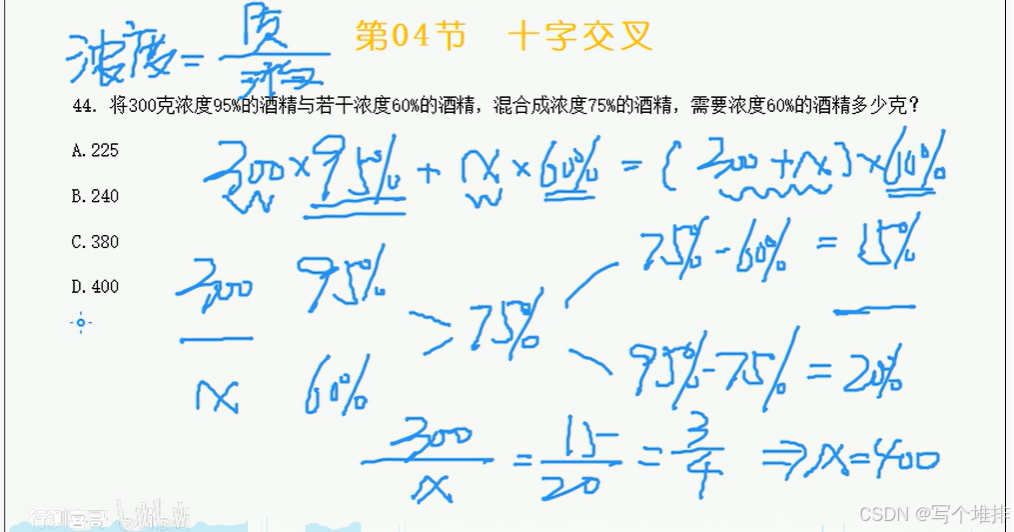 第04节 十字交叉
浓度=质/溶
44. 将300克浓度95%的酒精与若干浓度60%的酒精，混合成浓度75%的酒精，需要浓度60%的酒精多少克？
A. 225
B. 240
C. 380
D. 400
300×95%+x×60%=(300+x)×60%
300 95%
x 60%
>75%
75%-60%=15%
95%-75%=20%
300/x=15/20=3/4⇒x=400
CSDN @写个堆排